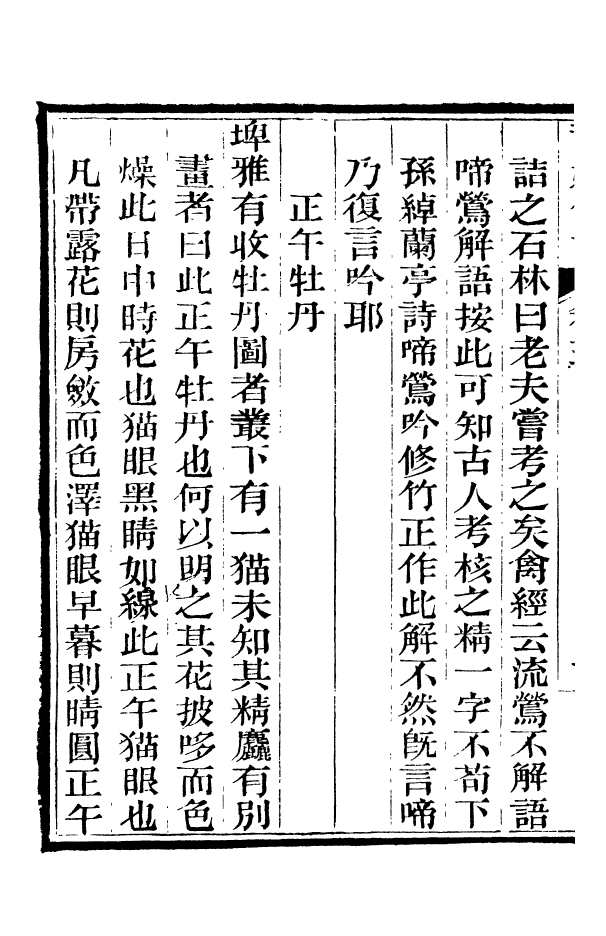 詰之石林曰老夫嘗考之矣禽經云流鶯不解語
啼鶯解語按此可知古人考核之精一字不茍下
孫綽蘭亭詩啼鶯吟修竹正作此解不然旣言啼
乃復言吟耶
正午牡丹
埤雅有收牡丹圖者叢下有一猫未知其精麤有別
畫者曰此正午牡丹也何以明之其花披哆而色
燥此日中時花也猫眼黑睛如線此正午猫眼也
凡帶露花則房斂而色澤猫眼早暮則睛圓正午